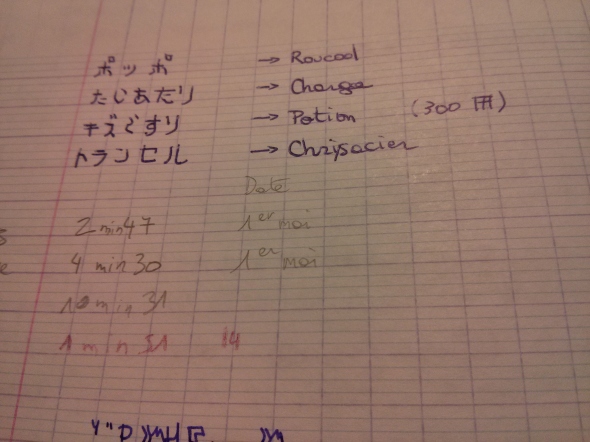 ポッポ → Roucool
たいあたり → Charge
キズぐすり → Potion (300 円)
トランセル → Chrysacier
Date
2 min 47 1er mai
4 min 30 1er mai
10 min 31
1 min 51 14